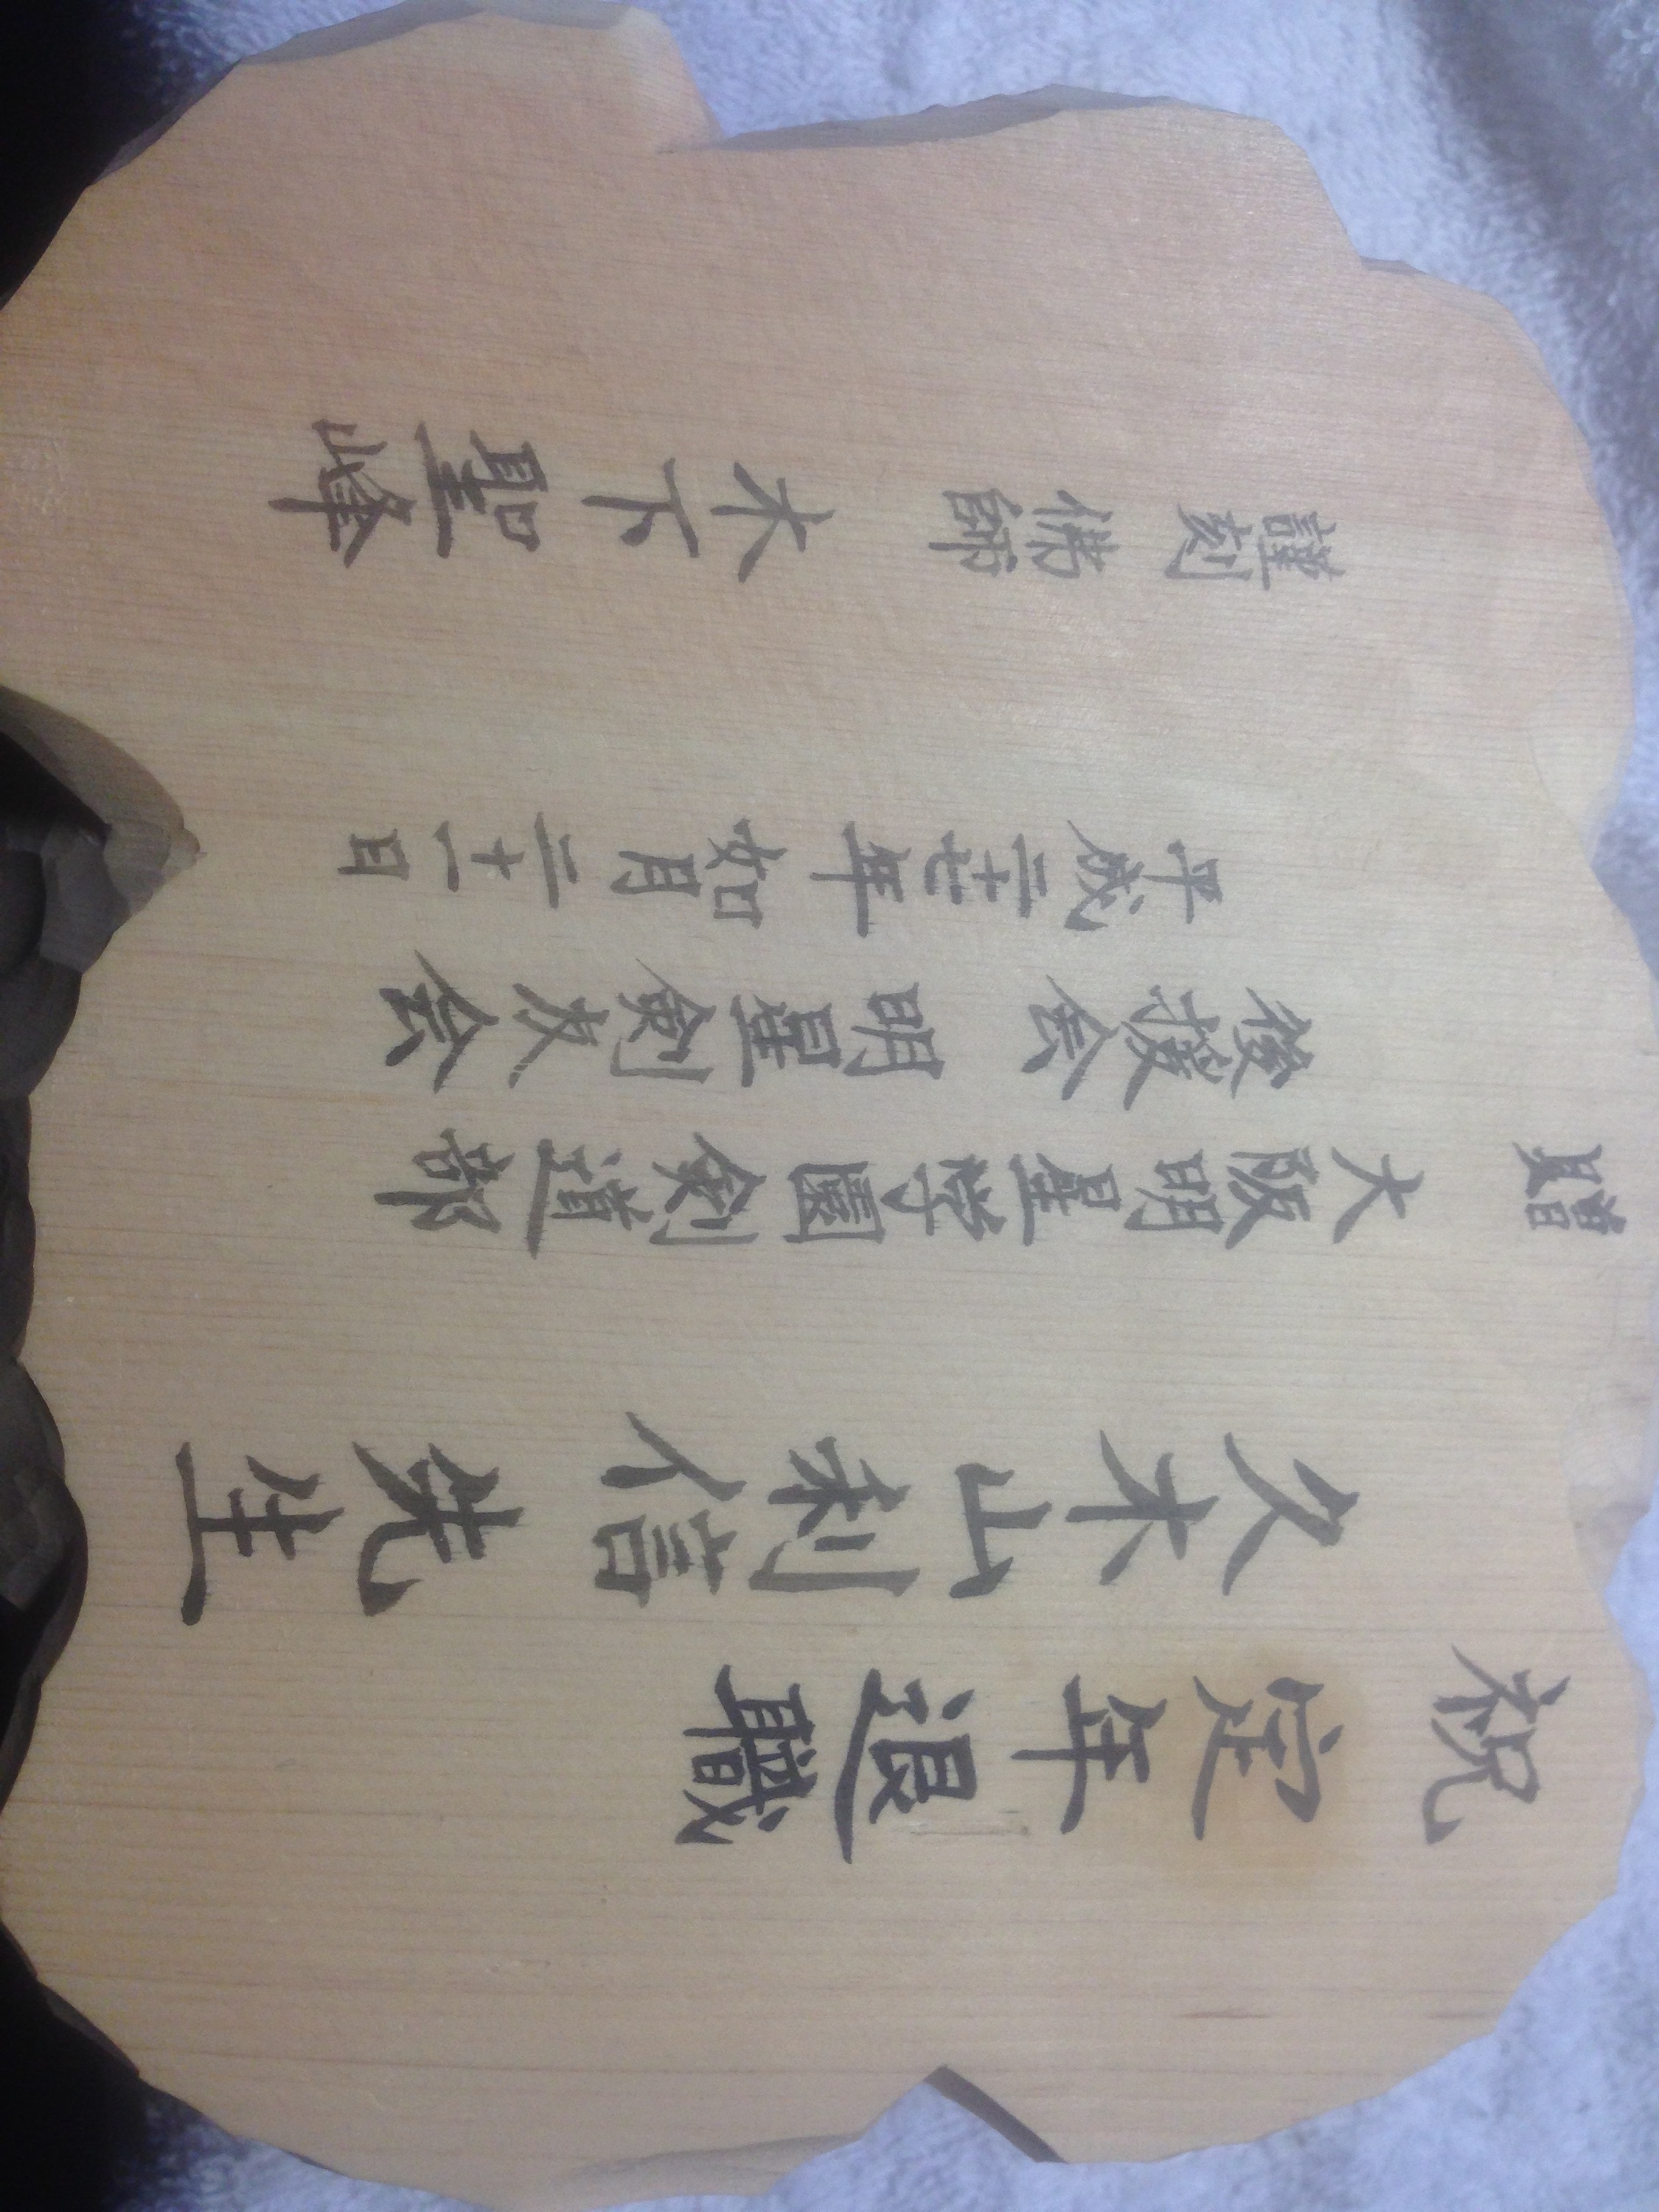 祝 定年退職
久木山利信先生
贈 大阪明星学園剣道部
後援会 明星剣友会
平成二十七年如月二十一日
謹刻 佛師 木下聖峰